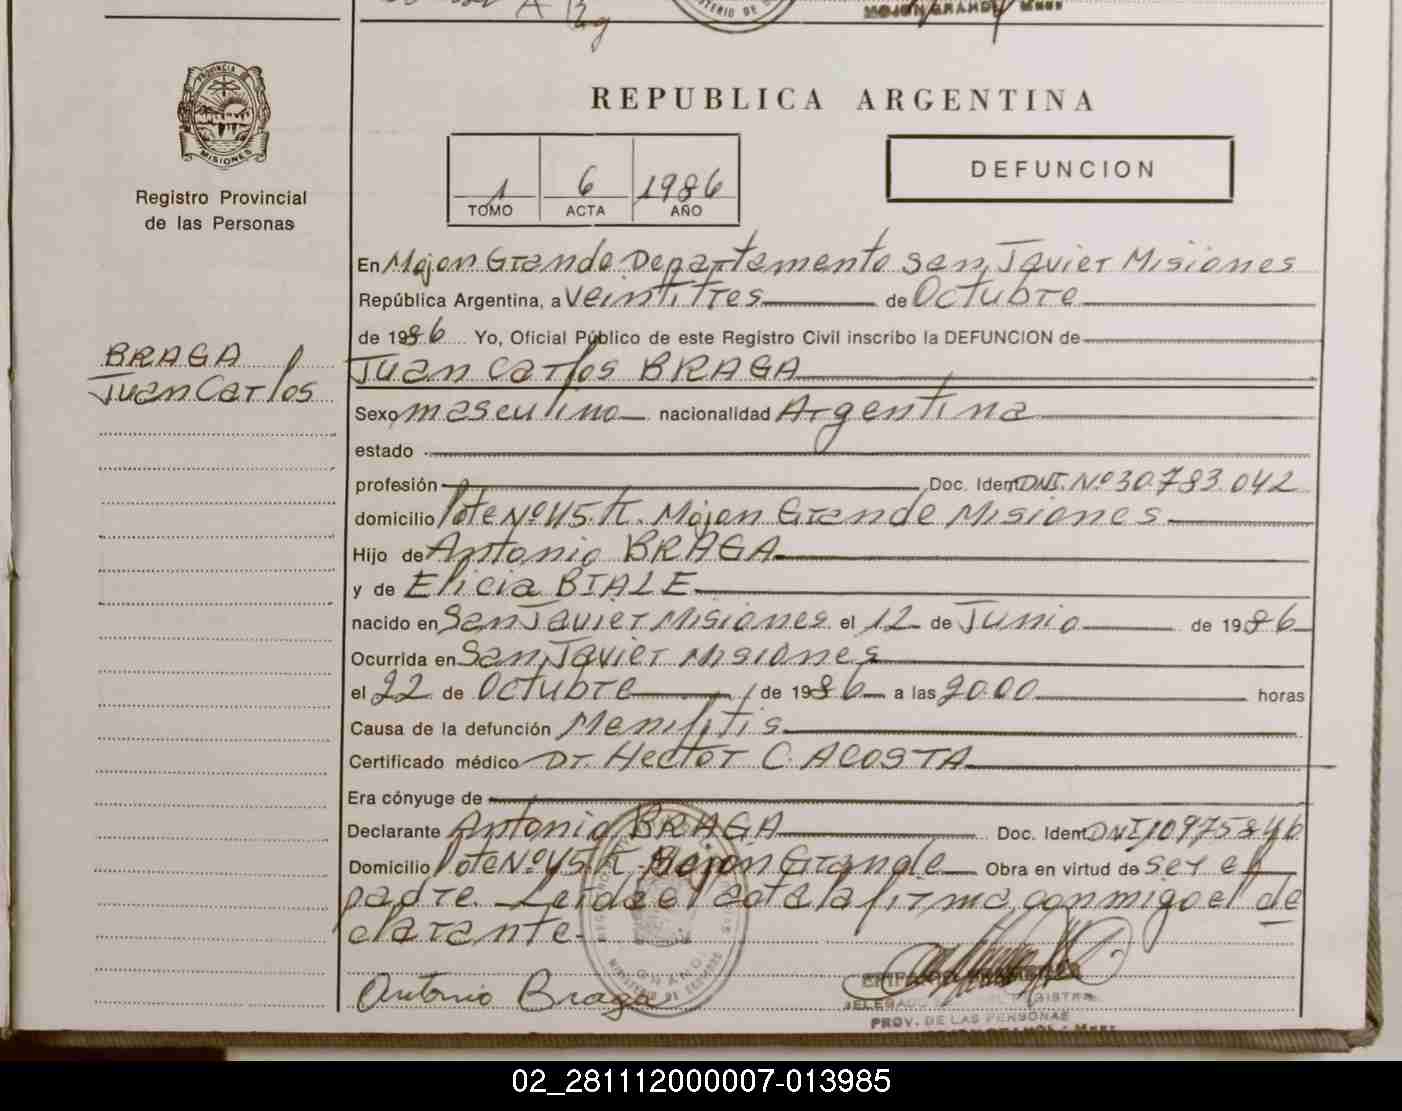 MOJON GRANDE
PROVINCIA DE
MISIONES
Registro Provincial
de las Personas
BRAGA
Juan Carlos
REPUBLICA ARGENTINA
1 6 1986
TOMO ACTA AÑO
DEFUNCION
En Mojon Grande Departamento San Javier Misiones
República Argentina, a Veintitres de Octubre
de 1986 Yo, Oficial Público de este Registro Civil inscribo la DEFUNCION de
Juan Carlos BRAGA
Sexo masculino nacionalidad Argentina
estado
profesión Doc. Ident. DNI. Nº 30.783.042
domicilio lote Nº 45.K. Mojon Grande Misiones
Hijo de Antonio BRAGA
y de Elicia BIALE
nacido en San Javier Misiones el 12 de Junio de 1986
Ocurrida en San Javier Misiones
el 22 de Octubre de 1986 a las 20.00 horas
Causa de la defunción Menifitis
Certificado médico Dr Hector C. ACOSTA
Era cónyuge de
Declarante Antonio BRAGA Doc. Ident. DNI,10975846
Domicilio lote Nº 45 K Mojon Grande Obra en virtud de ser el
padre. Leida el acta la firma conmigo el de
clarante.-
Antonio Braga
PROV. DE LAS PERSONAS
02_281112000007-013985